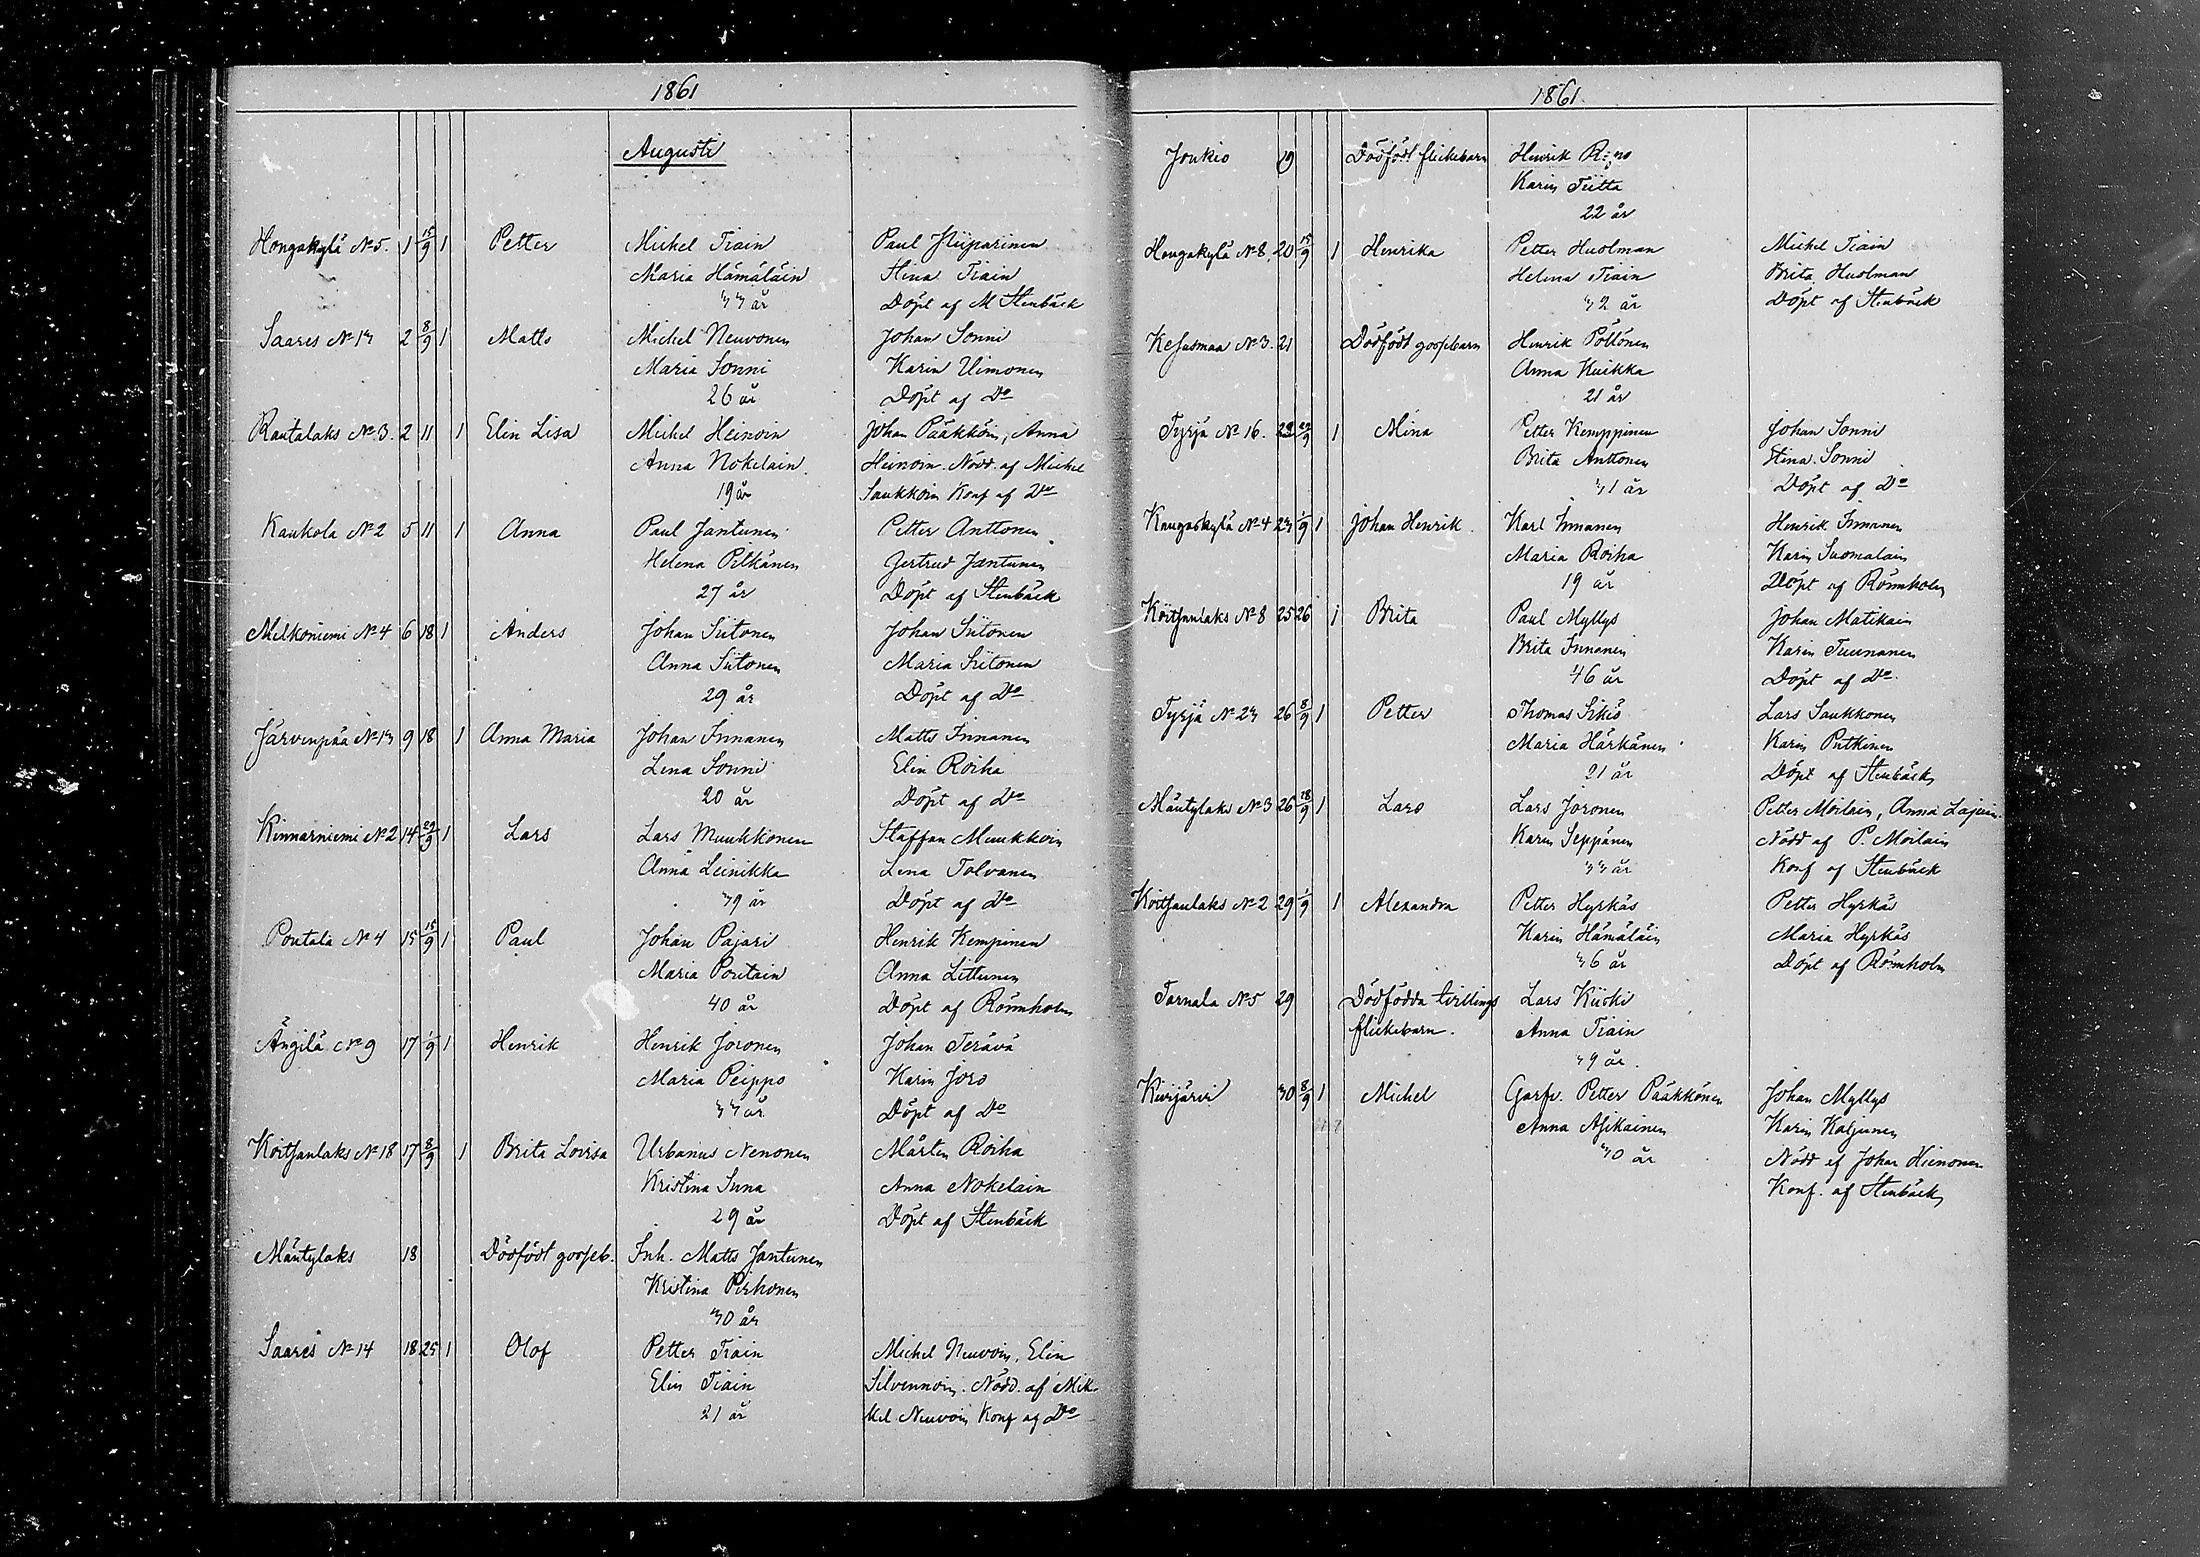 1861
Augusti
Hongakylä No 5. 1 15/9 1 Petter Michel Tiain Paul Stiparinen
Maria Hämäläin Stina Tiain
33 år Döpt af M Stenbäck
Saares No 13 2 8/9 1 Matts Michel Neuvonen Johan Sonni
Maria Sonni Karin Uimonen
26 år Döpt af Do
Rautalaks No 3. 2 11 1 Elin Lisa Michel Heinoin Johan Pääkköin, Anna
Anna Nokelain Heinoin. Nödd. af Michel
19 år Saukkoin Konf af Do
Kaukola No 2 5 11 1 Anna Paul Jantunen Petter Anttonen
Helena Pelkänen Gertrud Jantunen
27 år Döpt af Stenbäck
Melkoniemi No 4 6 18 1 Anders Johan Siitonen Johan Siitonen
Anna Siitonen Maria Siitonen
29 år Döpt af Do
Järvenpää No 13 9 18 1 Anna Maria Johan Innanen Matts Innanen
Lena Sonni Elin Roiha
20 år Döpt af Do
Kinnarniemi No 2 14 29/9 1 Lars Lars Muukkonen Staffan Muukkoin
Anna Leinikka Lena Tolvanen
39 år Döpt af Do
Poutala No 4 15 15/9 1 Paul Johan Pajari Henrik Kempinen
Maria Poutain Anna Littunen
40 år Döpt af Römnholm
Ängilä No 9 17 1/9 1 Henrik Henrik Joronen Johan Terävä
Maria Peippo Karin Joro
33 år Döpt af Do
Koitsanlaks No 18 17 8/9 1 Brita Lovisa Urbanus Nenonen Mårten Roiha
Kristina Suna Anna Nokelain
29 år Döpt af Stenbäck
Mäntylaks 18 Dödfödt gosseb. Inh. Matts Jantunen
Kristina Pirhonen
30 år
Saares No 14 18 25 1 Olof Petter Tiain Michel Neuvoin, Elin
Elin Tiain Silvennoin. Nödd. af Mik-
21 år kel Neuvoin Konf af Do
1861.
Joukio 19 Dödfödt flickebarn Henrik
Karin Tiitta
22 år
Hongakylä No 8. 20 15/9 1 Henrika Petter Husolman Michel Tiain
Helena Tiain Brita Husolman
32 år Döpt af Stenbäck
Kesusmaa No 3. 21 Dödfödt gossebarn Henrik Pöllönen
Anna Kuikka
21 år
Tyrjä No 16. 23 29/9 1 Mina Petter Kemppinen Johan Sonni
Brita Anttonen Stina Sonni
31 år Döpt af Do
Kangaskylä No 4 23 1/9 1 Johan Henrik Karl Innanen Henrik Innanen
Maria Roiha Karin Suomalain
19 år Döpt af Römnholm
Koitsanlaks No 8 25 26 1 Brita Paul Myllys Johan Matikain
Brita Innanen Karin Tuunanen
46 år Döpt af Do.
Tyrjä No 23 26 8/9 1 Petter Thomas Sikiö Lars Saukkonen
Maria Härkänen Karin Putkinen
21 år Döpt af Stenbäck
Mäntylaks No 3 26 28/9 1 Lars Lars Joronen Petter Moilain, Anna
Karin Seppänen Nödd af P. Moilain
33 år Konf af Stenbäck
Koitsanlaks No 2 29 1/9 1 Alexandra Petter Hyrkäs Petter Hyrkäs
Karin Hämäläin Maria Hyrkäs
36 år Döpt af Römnholm
Tarnala No 5 29 Dödfödda tvillings Lars Kiiski
flickebarn. Anna Tiain
39 år.
Kivijärvi 30 8/9 1 Michel Garfv. Petter Pääkkönen Johan Myllys
Anna Asikainen Karin Kaljunen
30 år Nödd af Johan Hienonen
Konf. af Stenbäck